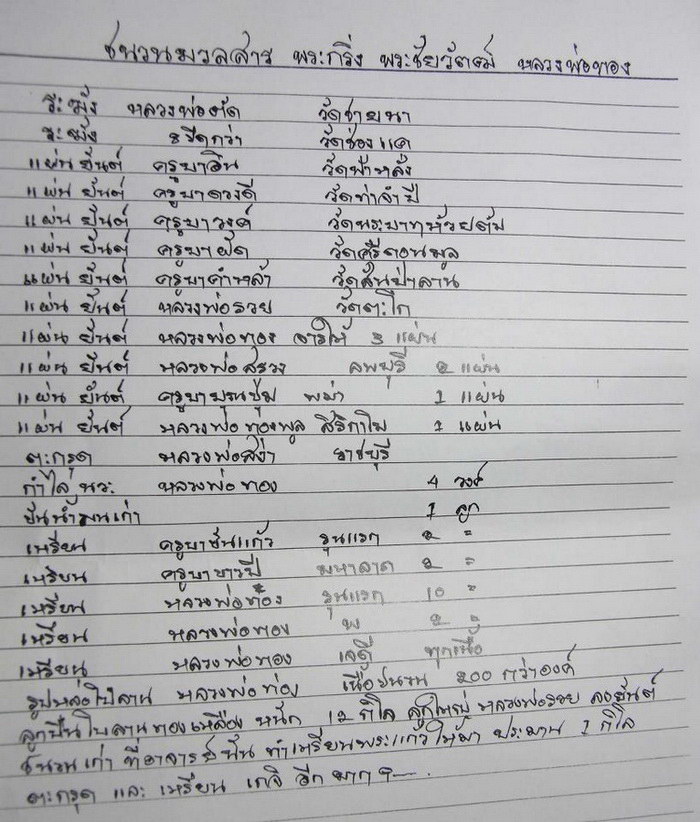 ชนวนมวลสาร พระกริ่ง พระชัยวัฒน์ หลวงพ่อทอง
ระฆัง หลวงพ่อตัด วัดชายนา
ระฆัง 8 ขีดกว่า วัดช่องแค
แผ่น ยันต์ ครูบาอิน วัดฟ้าหลั่ง
แผ่น ยันต์ ครูบาดวงดี วัดท่าจำปี
แผ่น ยันต์ ครูบาวงค์ วัดพระบาทห้วยต้ม
แผ่น ยันต์ ครูบาผัด วัดศรีดอนมูล
แผ่น ยันต์ ครูบาคำหล้า วัดสันป่าลาน
แผ่น ยันต์ หลวงพ่อรวย วัดตะโก
แผ่น ยันต์ หลวงพ่อทอง จารให้ 3 แผ่น
แผ่น ยันต์ หลวงพ่อสรวง ลพบุรี 2 แผ่น
แผ่น ยันต์ ครูบาบุญปั๋น พม่า 1 แผ่น
แผ่น ยันต์ หลวงพ่อทองพูล สิริกาโม 1 แผ่น
ตะกรุด หลวงพ่อสง่า ราชบุรี
กำไล นวะ หลวงพ่อทอง 4 วง
ขันน้ำมนเก่า 1 ลูก
เหรียน ครูบาชันแก้ว รุนแรก 2 "
เหรียน ครูบาขาวปี มหาลาด 2 "
เหรียน หลวงพ่อทอง รุนแรก 10 "
เหรียน หลวงพ่อทอง พ 2 "
เหรียน หลวงพ่อทอง เจดี ทุกเนื้อ
รูปหล่อโบลาน หลวงพ่อทอง เนื้อชนวน 200 กว่าองค์
ลูกปืนโบลานทองเหลือง หนัก 12 กิโล ลูกใหญ่ หลวงพ่อรวย ลงยันต์
ชนวนเก่า ที่อาจารย์ ทำเหรียนพระแก้วให้มา ประมาน 1 กิโล
ตะกรุด และ เหรียน เกจิ อีกมาก ๆ